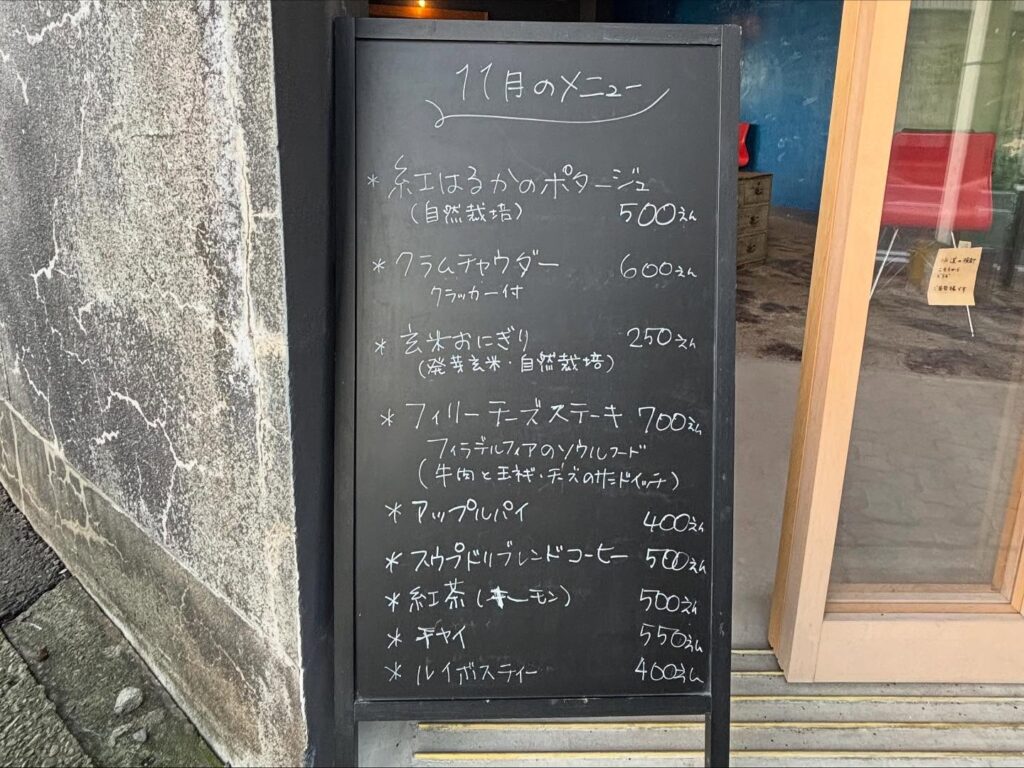 11月のメニュー
* 紅はるかのポタージュ
(自然栽培) 500えん
* クラムチャウダー 600えん
クラッカー付
* 玄米おにぎり 250えん
(発芽玄米・自然栽培)
* フィリーチーズステーキ 700えん
フィラデルフィアのソウルフード
(牛肉と玉ねぎ・チーズのサンドイッチ)
* アップルパイ 400えん
* スウプドリブレンドコーヒー 500えん
* 紅茶 (キーモン) 500えん
* チャイ 550えん
* ルイボスティー 400えん